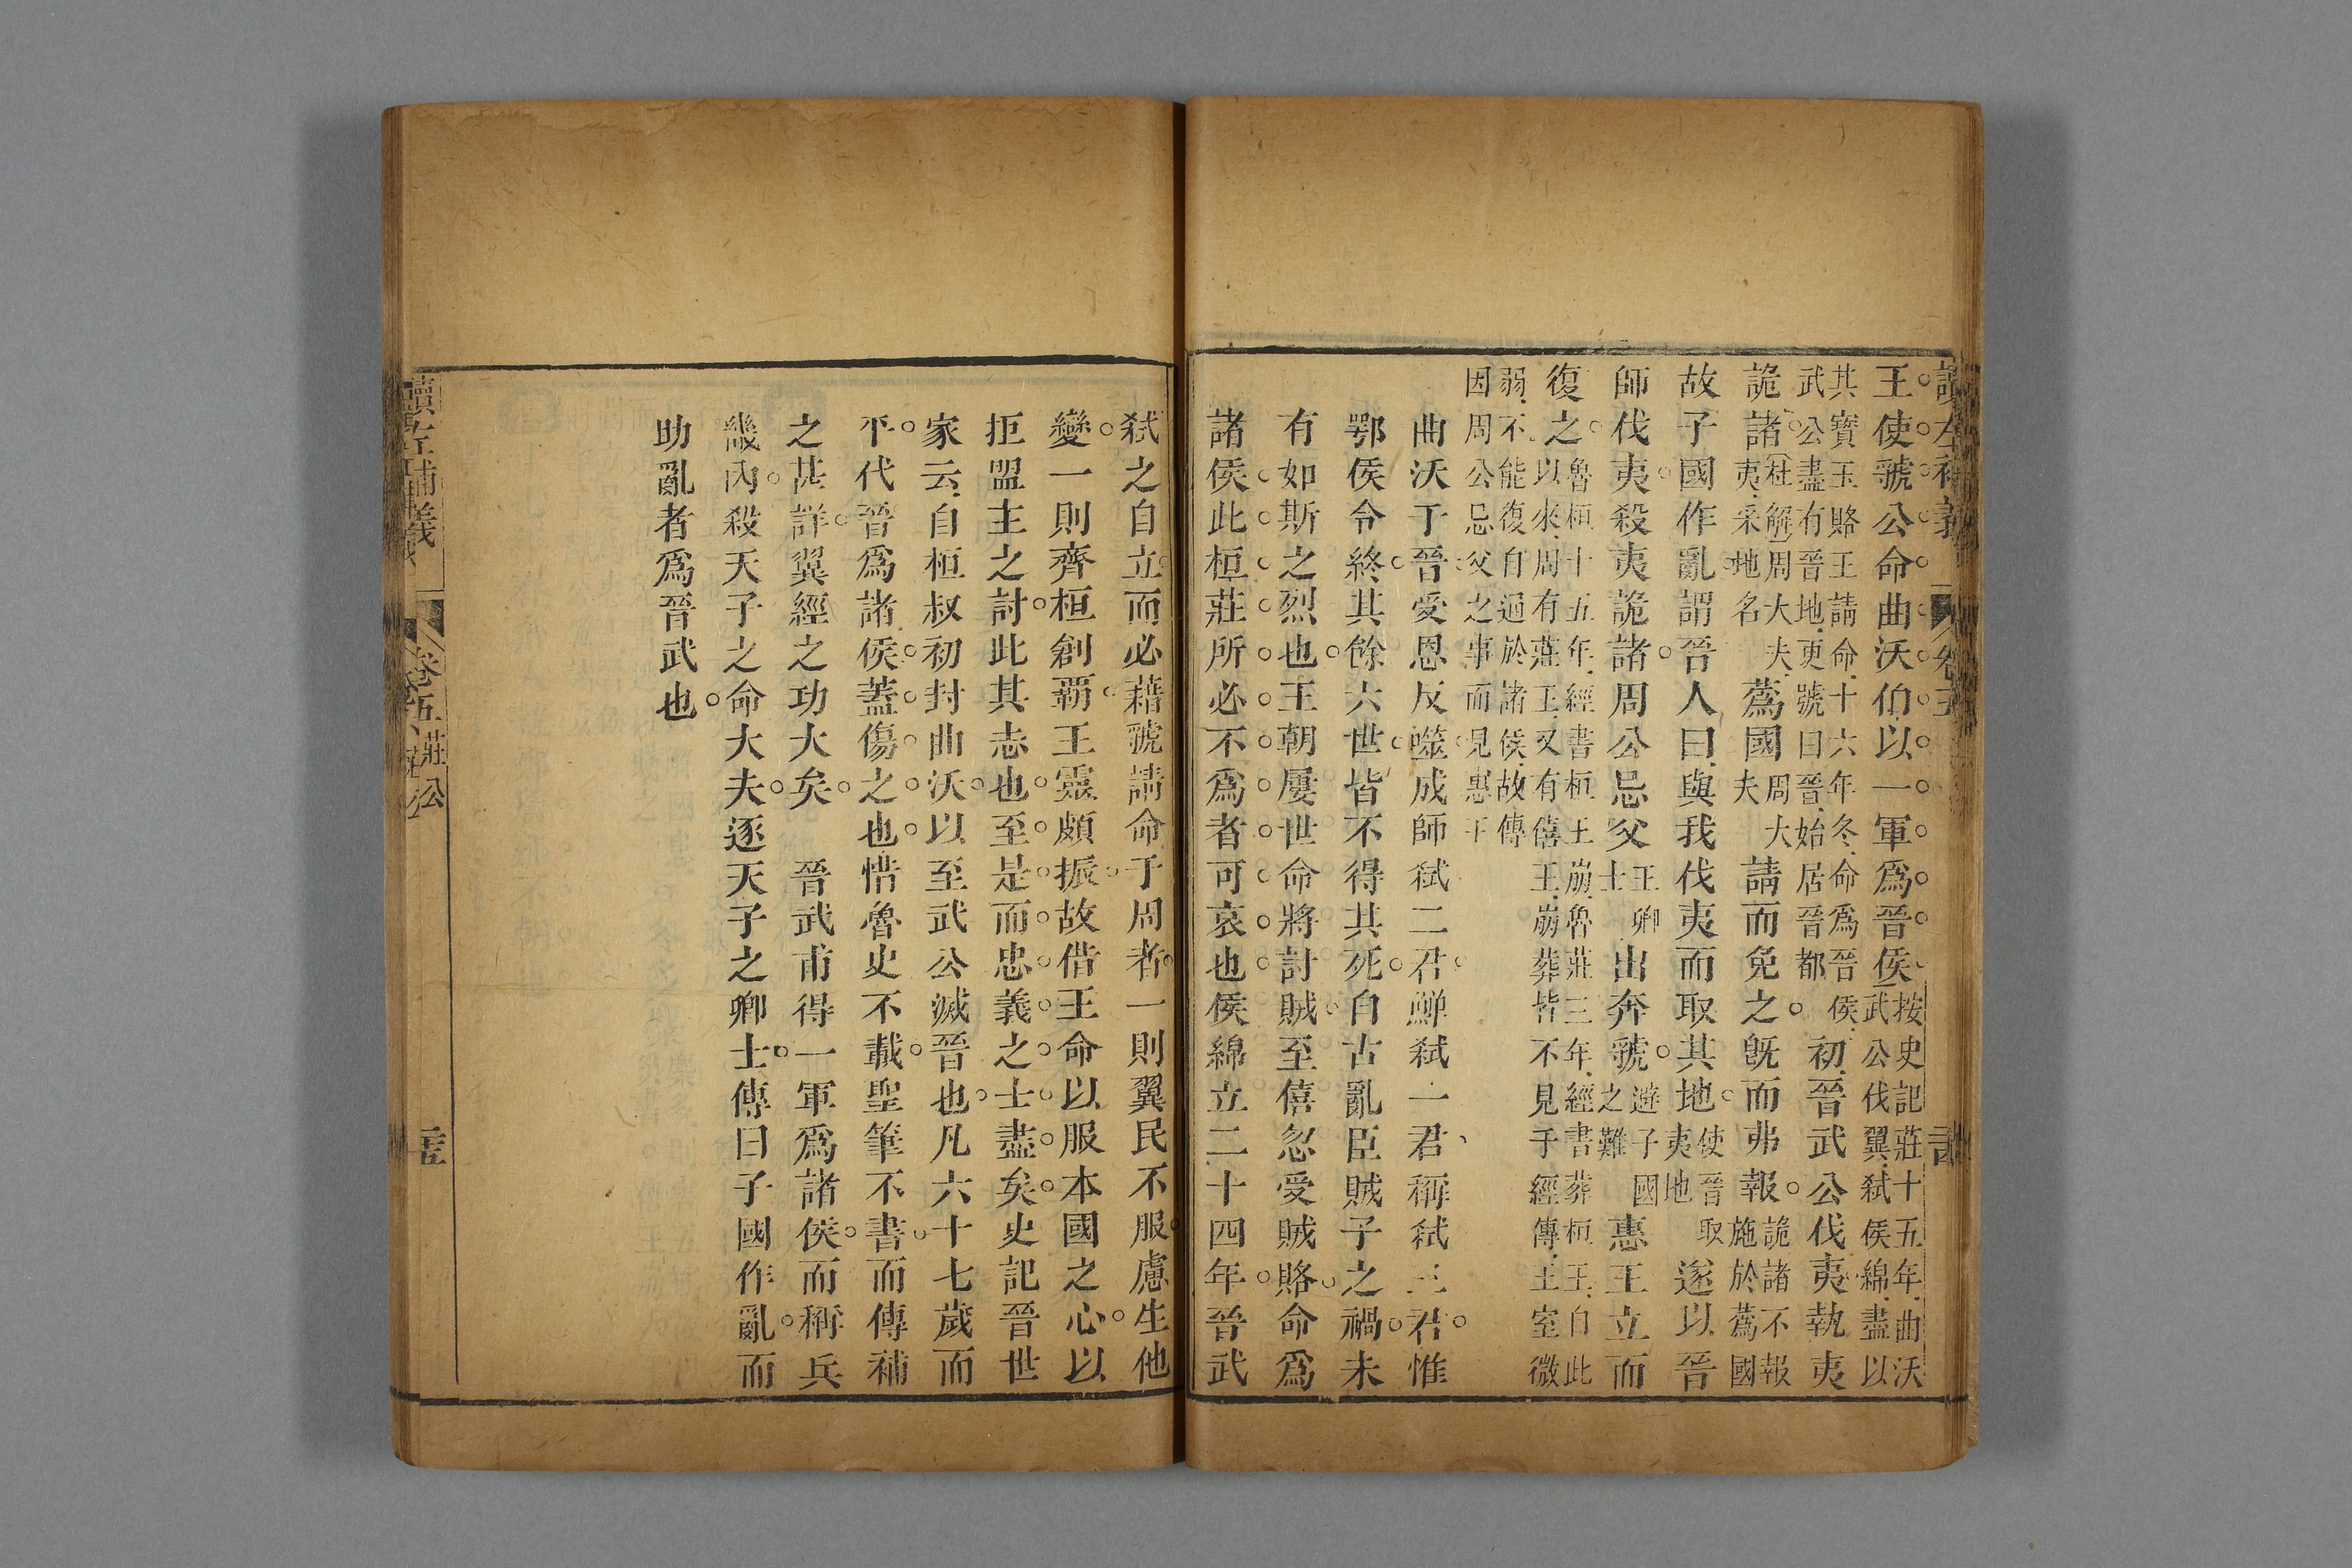 王使虢公命曲沃伯以一軍爲晉侯按史記莊十五年曲沃武公伐翼弒侯緡盡以
其寶玉賂王請命十六年冬命爲晉侯武公盡有晉地更號曰晉始居晉都初晉武公伐夷執夷
詭諸杜解周大夫夷采地名蒍國周大夫請而免之旣而弗報詭諸不報施於蒍國
故子國作亂謂晉人曰與我伐夷而取其地使晉取夷地遂以晉
師伐夷殺夷詭諸周公忌父王卿士出奔虢避子國之難惠王立而
復之魯桓十五年經書桓王崩魯莊三年經書葬桓王自此以來周有莊王又有僖王崩葬皆不見于經傳王室微
弱不能復自通於諸侯故傳因周公忌父之事而見惠王
曲沃于晉愛恩反噬成師弒二君鱓弒一君稱弒三君惟
鄂侯令終其餘六世皆不得其死自古亂臣賊子之禍未
有如斯之烈也王朝屢世命將討賊至僖忽受賊賂命爲
諸侯此桓莊所必不爲者可哀也侯緡立二十四年晉武
弒之自立而必藉虢請命于周者一則翼民不服慮生他
變一則齊桓創覇王靈頗振故借王命以服本國之心以
拒盟主之討此其志也至是而忠義之士盡矣史記晉世
家云自桓叔初封曲沃以至武公滅晉也凡六十七歲而
平代晉爲諸侯蓋傷之也惜魯史不載聖筆不書而傳補
之甚詳翼經之功大矣 晉武甫得一軍爲諸侯而稱兵
畿內殺天子之命大夫逐天子之卿士傳曰子國作亂而
助亂者爲晉武也
讀左補義 卷五 莊公 三五